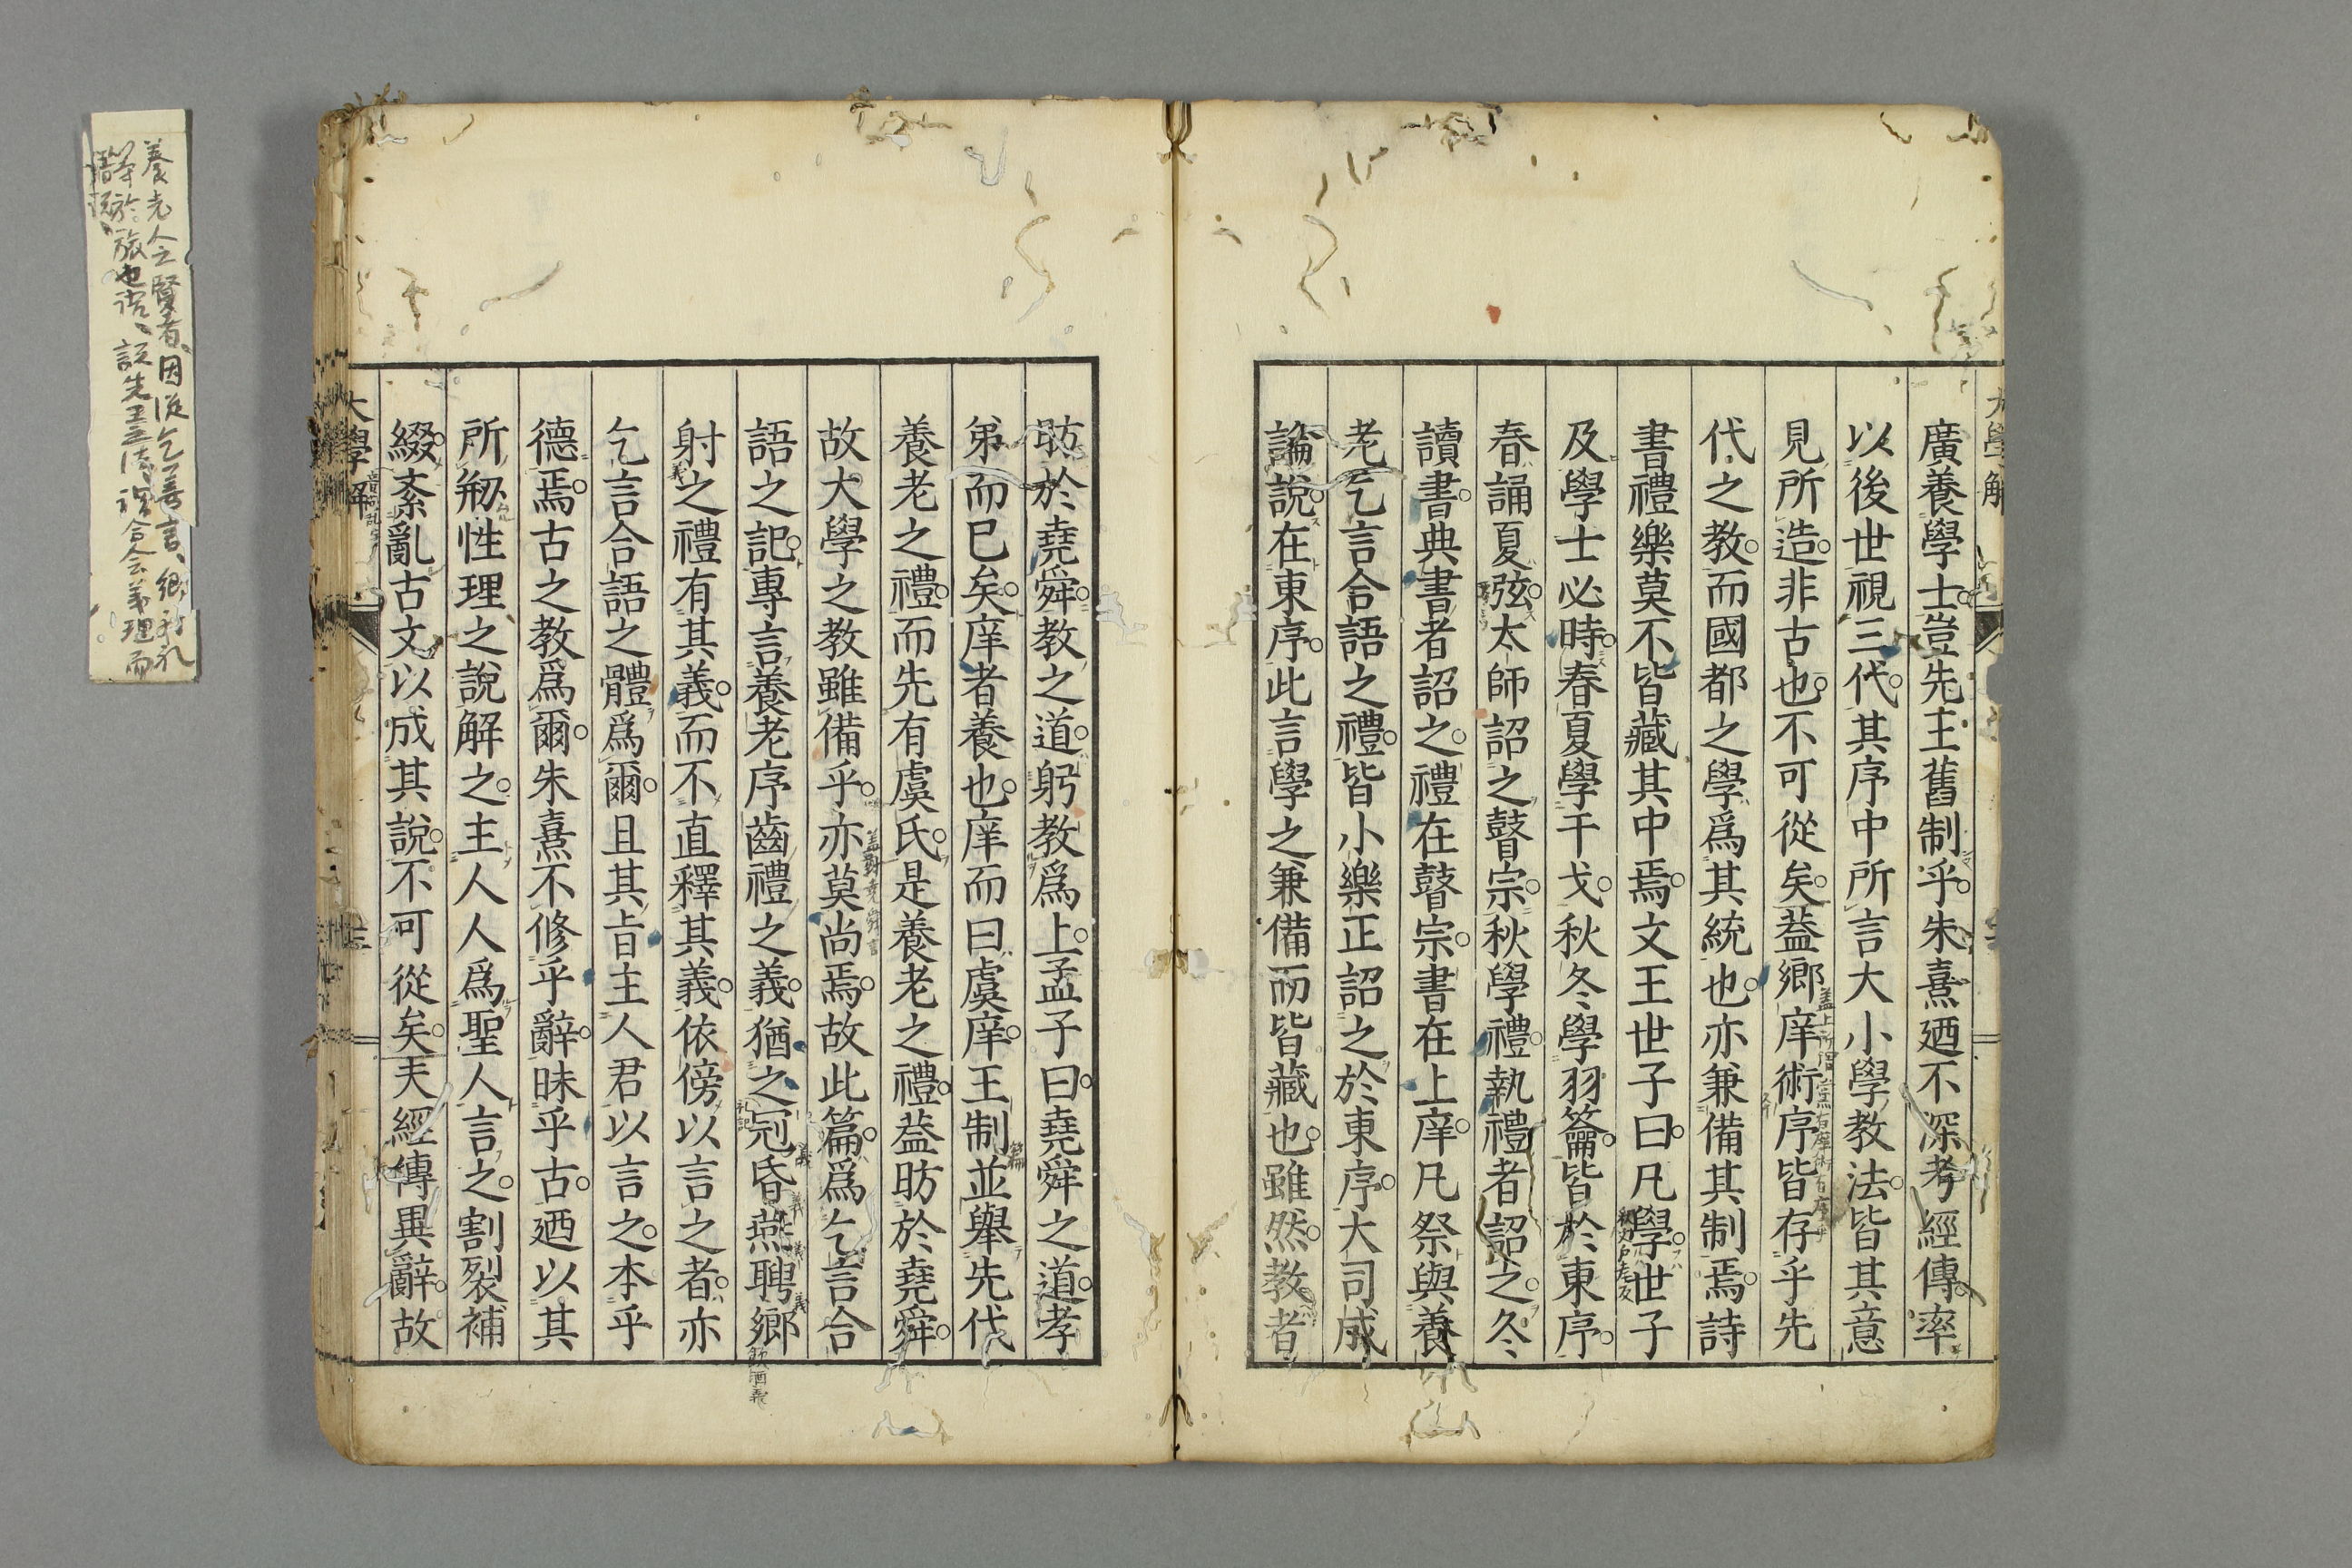 廣養學士。豈先王舊制乎。朱熹廼不深考經傳。率
以後世視三代。其序中所言大小學教法。皆其意
見所造。非古也。不可從矣。葢鄉庠術序皆存乎先
代之教。而國都之學爲其統也。亦兼備其制焉。詩
書禮樂莫不皆藏其中焉。文王世子曰。凡學。世子
及學士必時。春夏學干戈。秋冬學羽籥。皆於東序。
春誦夏弦。太師詔之瞽宗。秋學禮。執禮者詔之。冬
讀書。典書者詔之。禮在瞽宗。書在上庠。凡祭與養
老乞言合語之禮。皆小樂正詔之於東序。大司成
論說。在東序。此言學之兼備而皆藏也。雖然。教者
昉於堯舜。教之道。躬教爲上。孟子曰。堯舜之道。孝
弟而已矣。庠者養也。庠而曰虞庠。王制並舉先代
養老之禮。而先有虞氏。是養老之禮。葢昉於堯舜。
故大學之教雖備乎。亦莫尚焉。故此篇。爲乞言合
語之記。專言養老序齒禮之義。猶之冠昏燕聘鄉
射之禮有其義。而不直釋其義。依傍以言之者。亦
乞言合語之體爲爾。且其旨主人君以言之。本乎
德焉。古之教爲爾。朱熹不修乎辭。昧乎古。廼以其
所剏性理之說解之。主人人爲聖人言之。割裂補
綴。紊亂古文。以成其說。不可從矣。夫經傳異辭。故
大學解
養老人之賢者、因從乞善言、鄉射礼